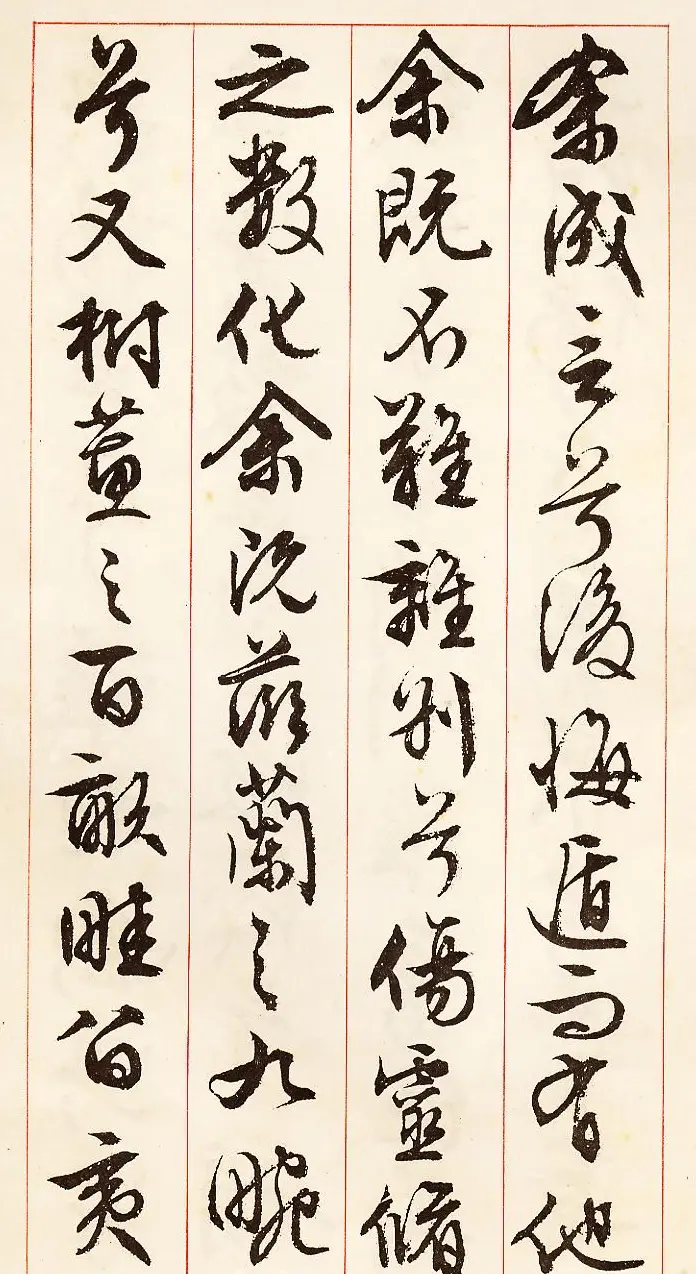 余成言兮後悔遁而有他
余既不難離別兮傷靈脩
之數化余既滋蘭之九畹
兮又樹蕙之百畝畦留夷